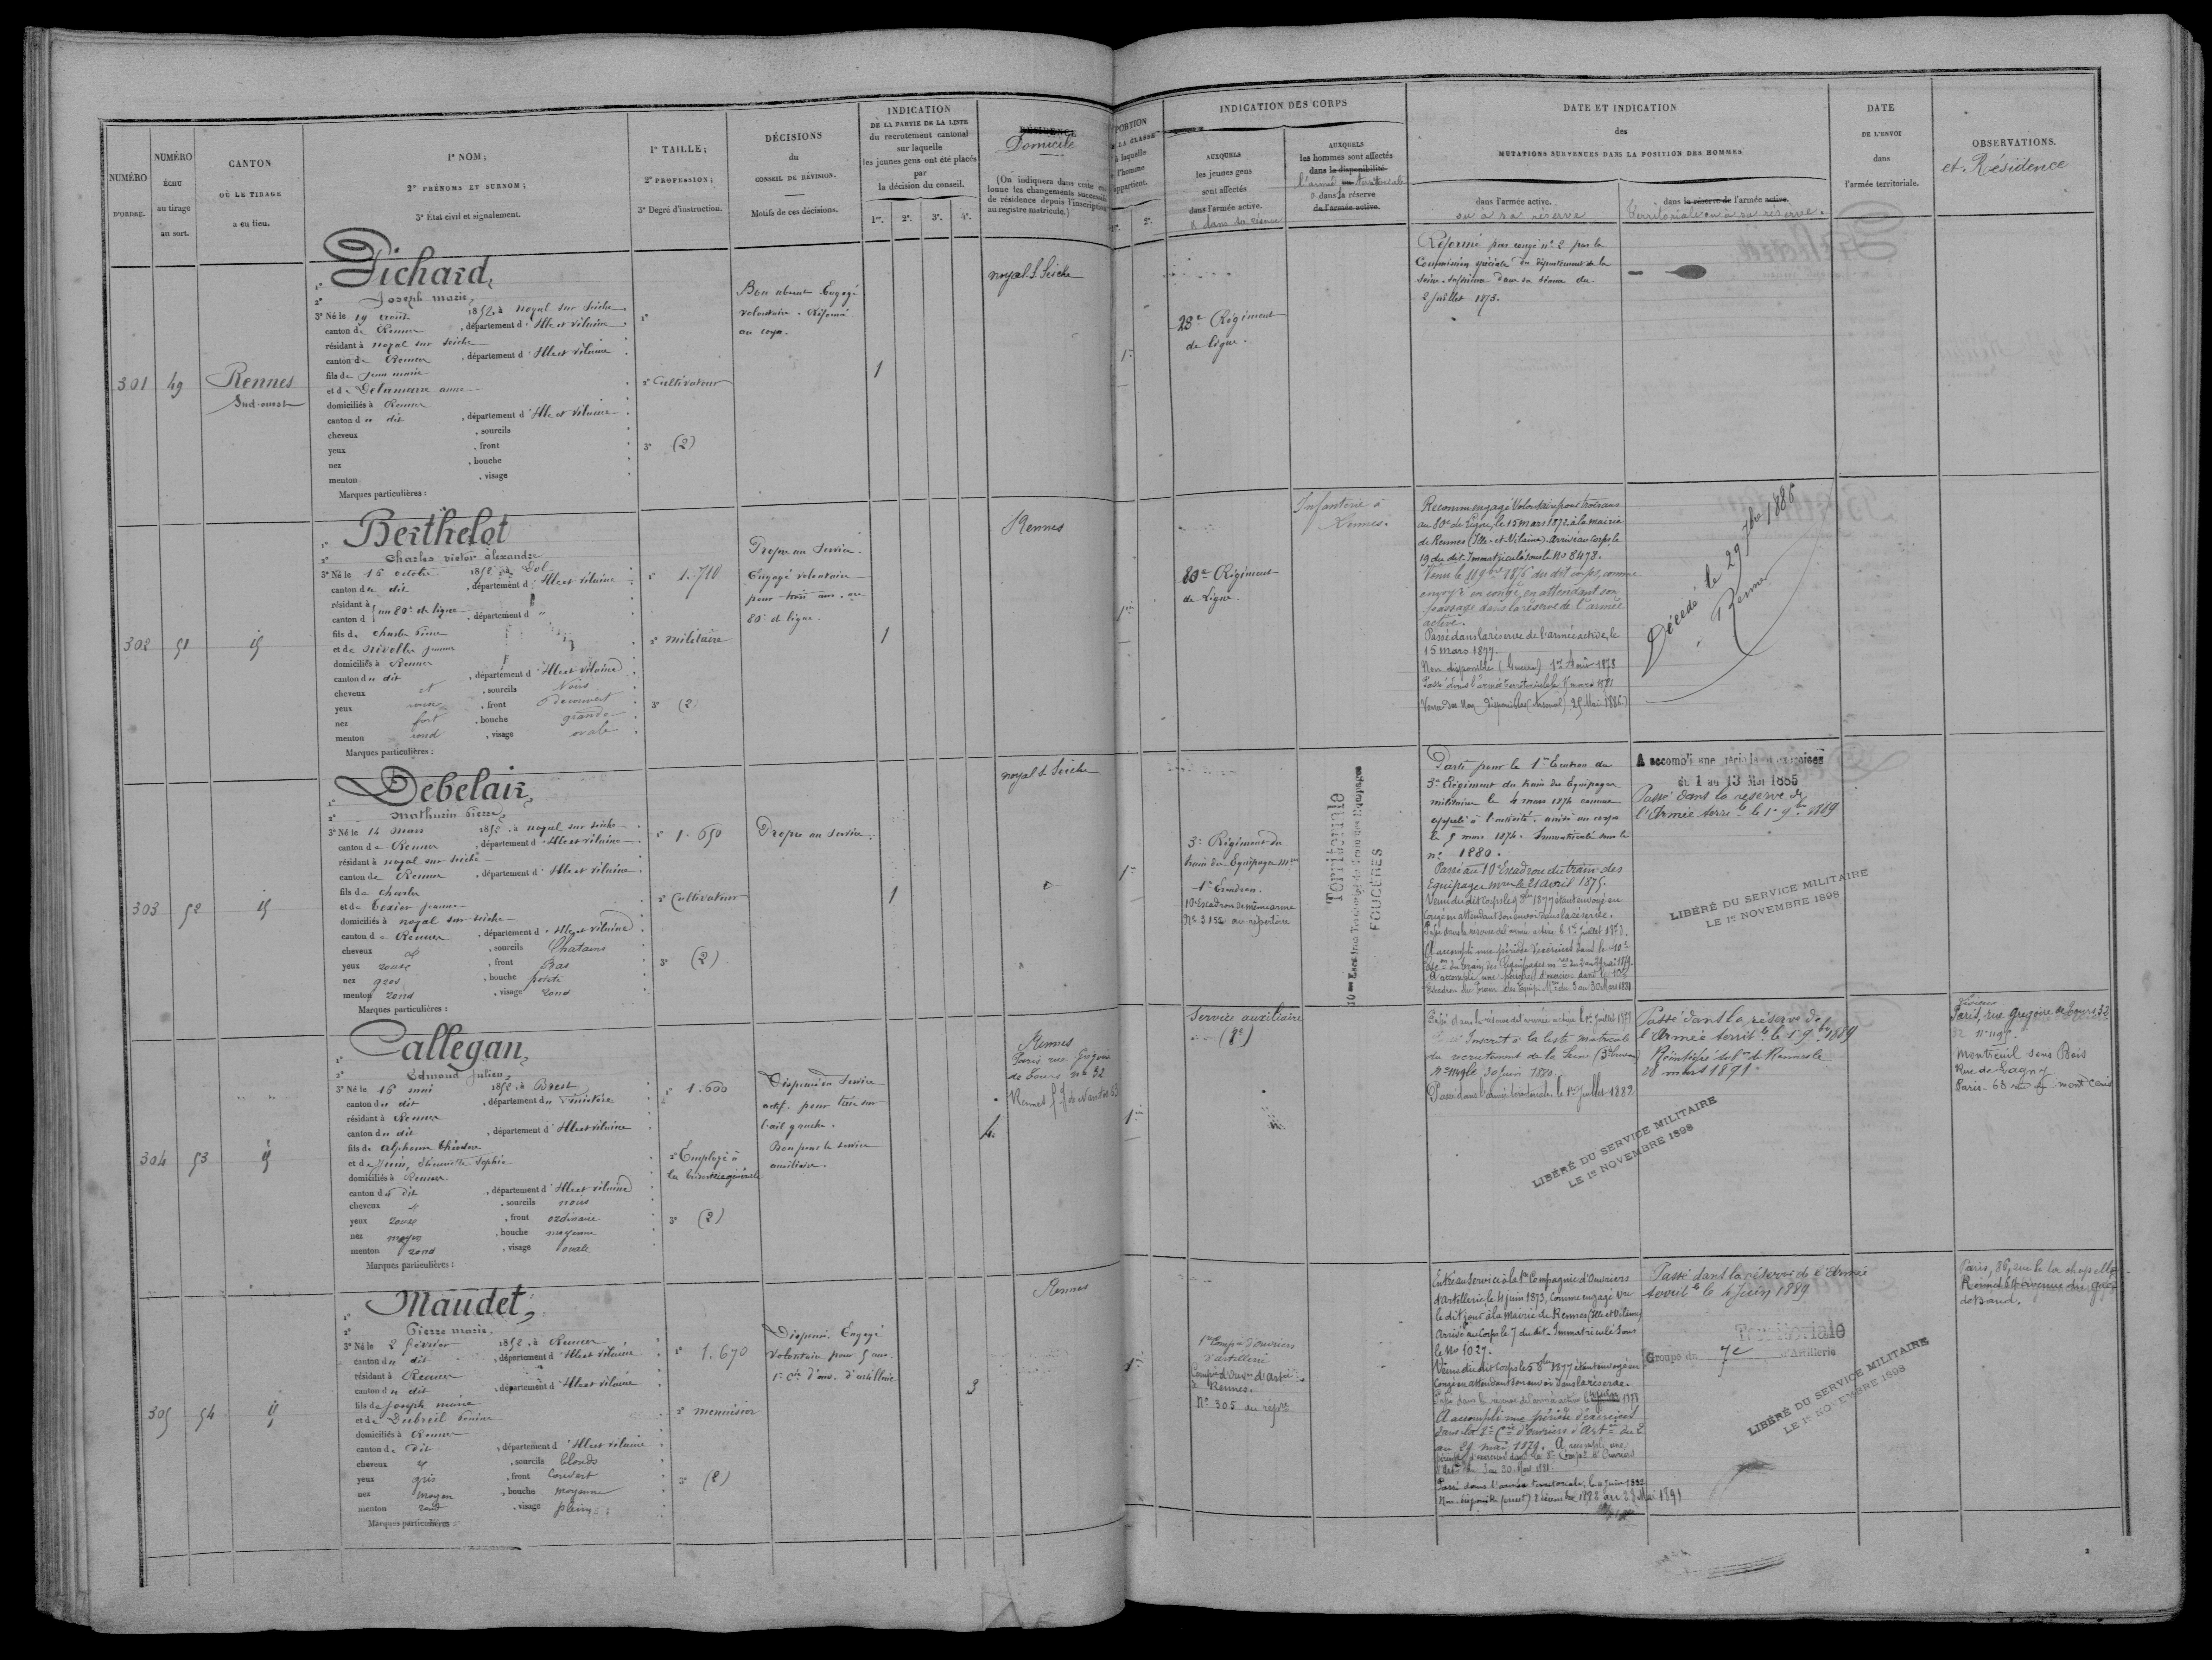 NUMÉRO
D'ORDRE.
NUMÉRO
ÉCHU
au tirage
au sort.
CANTON
OÙ LE TIRAGE
a eu lieu.
1° NOM;
2° PRÉNOMS ET SURNOM;
3° État civil et signalement.
1° TAILLE;
2° PROFESSION;
3° Degré d'instruction.
DÉCISIONS
du
CONSEIL DE RÉVISION.
Motifs de ces décisions.
INDICATION
DE LA PARTIE DE LA LISTE
du recrutement cantonal
sur laquelle
les jeunes gens ont été placés
par
la décision du conseil.
1re. 2e. 3e. 4e.
RÉSIDENCE
Domicile
(On indiquera dans cette
lonne les changements successifs
de résidence depuis l'inscription
au registre matricule.)
PORTION
DE LA CLASSE
à laquelle
l'homme
appartient.
2e.
INDICATION DES CORPS
AUXQUELS
les jeunes gens
sont affectés
dans l'armée active.
AUXQUELS
les hommes sont affectés
dans la disponibilité
ou
dans la réserve
de l'armée active.
DATE ET INDICATION
des
MUTATIONS SURVENUES DANS LA POSITION DES HOMMES
dans l'armée active.
ou à sa réserve
dans la réserve de l'armée active.
Territoriale ou à sa réserve.
DATE
DE L'ENVOI
dans
l'armée territoriale.
OBSERVATIONS.
et Résidence
301
49
Rennes
Sud-ouest
1° Pichard,
2° Joseph marie,
3° Né le 19 août 1852, à noyal sur seiche
canton de Rennes, département d'Ille et vilaine
résidant à noyal sur seiche
canton de Rennes, département d'Ille et vilaine
fils de Jean marie
et de Delamarre anne
domiciliés à Rennes
canton d u dit, département d'Ille et vilaine
cheveux , sourcils
yeux , front
nez , bouche
menton , visage
Marques particulières :
1°
2° Cultivateur
3° (2)
Bon absent Engagé
volontaire. Réformé
au corps.
1
noyal S. Seiche
1re
28e Régiment
de ligne.
Réformé par congé n° 2 par la
Commission spéciale du département de la
Seine-Inférieure dans sa séance du
2 Juillet 1873.
302
51
id
1° Berthelot
2° Charles victor alexandre
3° Né le 16 octobre 1852, à Dol
canton du dit, département d'Ille et vilaine
résidant à
canton d au 80e de ligne, département d "
fils de charles
et de nivolle jeanne
domiciliés à Rennes
canton du dit, département d'Ille et vilaine
cheveux et , sourcils Noirs
yeux roux , front Découvert
nez fort , bouche grande
menton rond , visage ovale
Marques particulières :
1° 1.710
2° militaire
3° (2)
Propre au Service.
Engagé volontaire
pour trois ans. au
80e de ligne.
1
Rennes
1re
80e Régiment
de Ligne.
Infanterie à
Rennes.
Reconnu engagé Volontaire pour trois ans
au 80e de Ligne, le 15 mars 1872 à la mairie
de Rennes (Ille-et-Vilaine). Arrivé au Corps, le
19 du dit. Immatriculé sous le No 8478.
Venu le 11 9bre 1876 du dit corps, comme
envoyé en congé, en attendant son
passage dans la réserve de l'armée
active.
Passé dans la réserve de l'armée active, le
15 mars 1877.
Non disponible (Guerre) 1er Août 1878
Passé dans l'armée territoriale le 15 mars 1881
Venu des Non Disponibles (Arsenal) 25 Mai 1886
Décédé le 29 7bre 1886
Rennes
303
52
id
1° Debelair,
2° Mathurin Pierre,
3° Né le 14 mars 1852, à noyal sur seiche
canton de Rennes, département d'Ille et vilaine
résidant à noyal sur seiche
canton de Rennes, département d'Ille et vilaine
fils de charles
et de Texier jeanne
domiciliés à noyal sur seiche
canton de Rennes, département d'Ille et vilaine
cheveux et , sourcils Chatains
yeux roux , front Bas
nez gros , bouche petite
menton rond , visage rond
Marques particulières :
1° 1.650
2° Cultivateur
3° (2)
Propre au Service.
1
noyal S. Seiche
1re
3e Régiment du
train des Equipages mres
1er Escadron.
10e Escadron de même arme
No 3152 au répertoire
Territoriale
FOUGÈRES
Parti pour le 1er Escadron du
3e Régiment du train des Equipages
militaires le 4 mars 1874 comme
appelé à l'activité. arrivé au corps
le 5 mars 1874. Immatriculé sous le
n° 1880.
Passé au 10e Escadron du train des
Equipages mres le 21 avril 1875.
Venu du dit Corps le 9 1877 étant envoyé en
Congé en attendant son envoi dans la réserve.
Passé dans la réserve de l'armée active le 1er Juillet 1877.
A accompli une période d'exercices dans le 10e
A accompli une période d'exercices dans le 10e
Escadron du Train des Equip. Mres du 3 au 30 Mars 1881
A accompli une période d'exercices
du 1 au 13 Mai 1885
Passé dans la réserve de
l'Armée terrile le 1er 9bre 1889
LIBÉRÉ DU SERVICE MILITAIRE
LE 1er NOVEMBRE 1898
304
53
id
1° Callegan,
2° Edmond Julien,
3° Né le 16 mai 1852, à Brest
canton du dit, département du Finistère
résidant à Rennes
canton du dit, département d'Ille et vilaine
fils de alphonse théodore
et de Sophie
domiciliés à Rennes
canton du dit, département d'Ille et vilaine
cheveux et , sourcils noirs
yeux roux , front ordinaire
nez moyen , bouche moyenne
menton rond , visage ovale
Marques particulières :
1° 1.600
2° Employé à
la trésorerie générale
3° (2)
Dispensé du Service
actif. pour taie sur
l'œil gauche.
Bon pour le service
auxiliaire.
4.
Rennes
Paris rue Grégoire
de Tours no 32
Rennes f g de Nantes 63
1re
Service auxiliaire
Passé dans la réserve de l'armée active le 1er Juillet 1877
Inscrit à la liste matricule
du recrutement de la Seine (3e bureau)
30 Juin 1880.
Passé dans l'armée territoriale le 1er Juillet 1882
Passé dans la réserve de
l'Armée territle le 1er 9bre 1889
Réintégré dole de Rennes le
28 mars 1891.
LIBÉRÉ DU SERVICE MILITAIRE
LE 1er NOVEMBRE 1898
Paris, rue Grégoire de Tours 32
Montreuil sous Bois
Rue de Lagny
Paris. 63 rue du mont Cenis
305
54
id
1° Maudet,
2° Pierre marie,
3° Né le 2 février 1852, à Rennes
canton du dit, département d'Ille et vilaine
résidant à Rennes
canton du dit, département d'Ille et vilaine
fils de Joseph marie
et de Dubreil
domiciliés à Rennes
canton du dit, département d'Ille et vilaine
cheveux et , sourcils blonds
yeux gris , front Couvert
nez moyen , bouche moyenne
menton rond , visage plein
Marques particulières :
1° 1.670
2° menuisier
3° (2)
Dispensé. Engagé
volontaire pour 5 ans.
1re Cie d'ouv. d'artillerie
3
Rennes
1re
1re Compie d'ouvriers
d'artillerie
Rennes.
No 305 au répre
Entré au Service à la 1re Compagnie d'Ouvriers
d'Artillerie, le 4 juin 1873, Comme engagé Vre
le dit jour à la Mairie de Rennes (Ille et Vilaine)
Arrivé au Corps le 7 du dit. Immatriculé sous
le No 1027.
Venu du dit Corps le 5 8bre 1877 étant envoyé en
Congé en attendant son envoi dans la réserve.
Passé dans la réserve de l'armée active le 1878
A accompli une période d'exercices
dans la Cie d'ouvriers d'Artie du 2
au 29 mai 1879. A accompli une
période d'exercices dans la Compie d'Ouvriers
d'Artie du 3 au 30 Mars 1881.
Passé dans l'armée territoriale, le 4 Juin 1882
Non disponible 2 décembre 1882 au 28 Mai 1891
Passé dans la réserve de l'Armée
territle le 4 Juin 1889
Territoriale
Groupe du 7e d'Artillerie
LIBÉRÉ DU SERVICE MILITAIRE
LE 1er NOVEMBRE 1898
Paris, 85, rue de la chapelle
Rennes avenue du
2